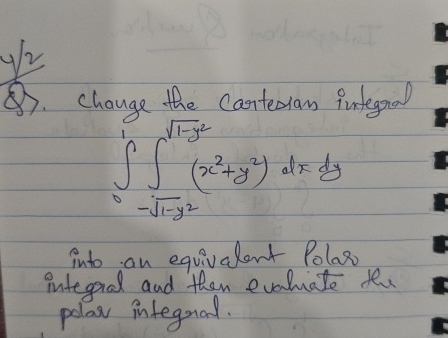 4/2
Q7. Change the Cartesian integral
∫₀¹ ∫_{-√1-y²}^{√1-y²} (x²+y²) dx dy
into an equivalent Polar
integral and then evaluate the
polar integral.